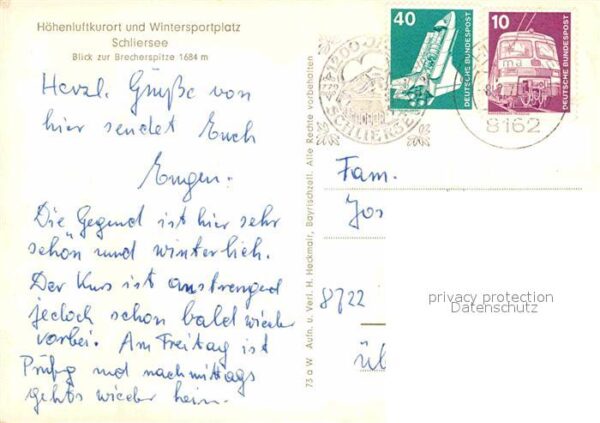 Höhenluftkurort und Wintersportplatz
Schliersee
Blick zur Brecherspitze 1684 m
Herzl. Grüße von
hier sendet Euch
Eugen.
Die Gegend ist hier sehr
schön und winterlich.
Der Kurs ist anstrengend
jedoch schon bald wieder
vorbei. Am Freitag ist
Prüfg und nachmittags
gehts wieder heim.
73 a W Aufn. u. Verl. H. Heckmair, Bayrischzell. Alle Rechte vorbehalten
1200
SCHLIERSEE
40
DEUTSCHE BUNDESPOST
10
DEUTSCHE BUNDESPOST
8162
Fam.
Jos
8722
üb
privacy protection
Datenschutz